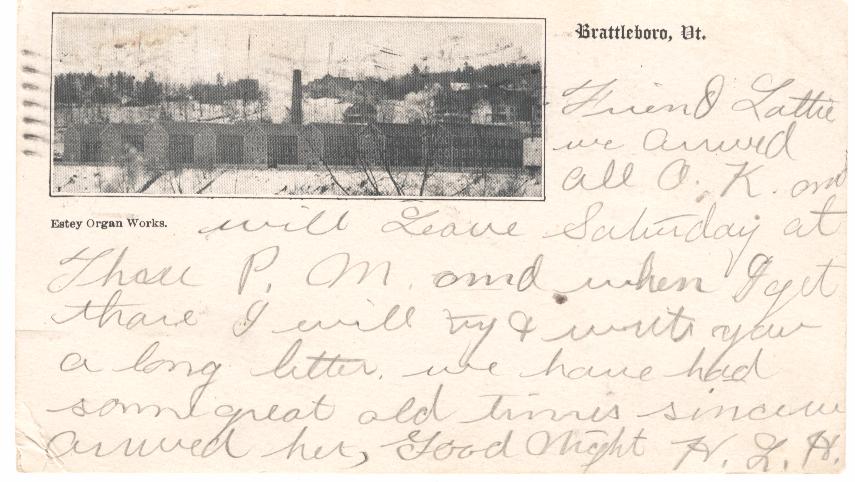 Brattleboro, Vt.
Friend Lottie
we arrived
all O. K. and
Estey Organ Works.
will Leave Saturday at
Thare P. M. and when I get
thare I will try & write you
a long letter. we have had
some great old times since we
arrived her, Good Night H. L. H.